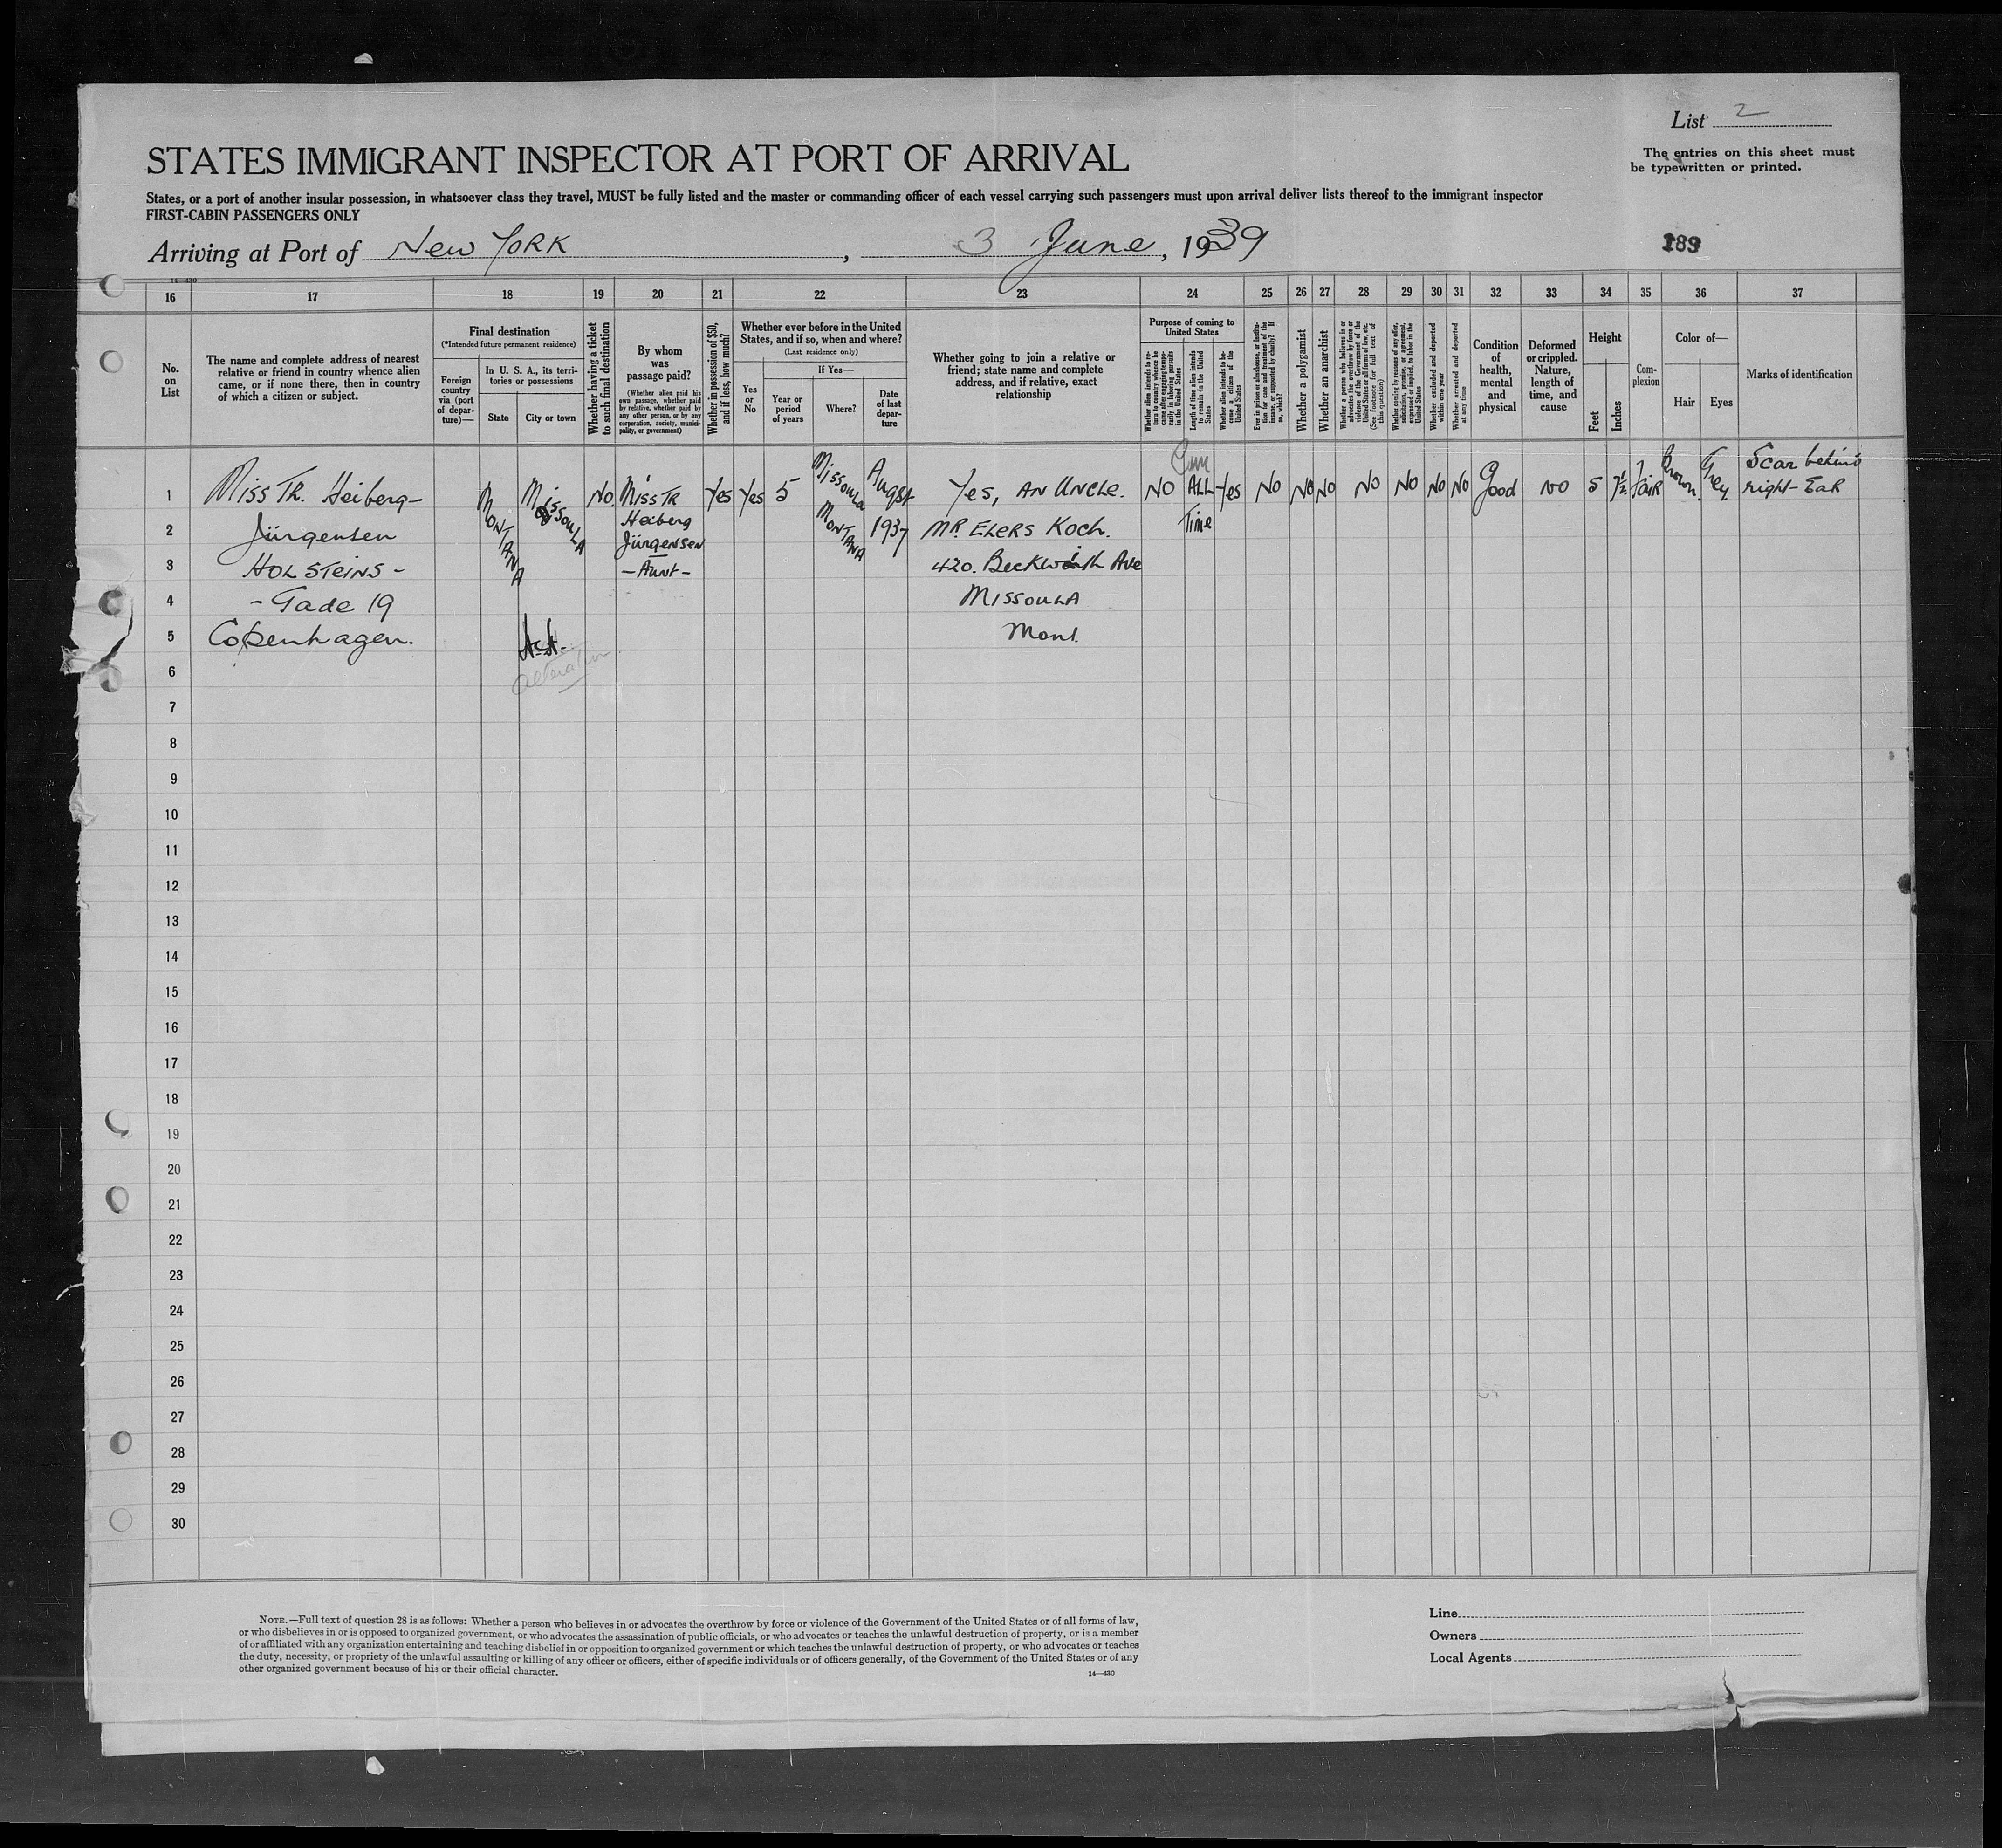 List 2
The entries on this sheet must
be typewritten or printed.
STATES IMMIGRANT INSPECTOR AT PORT OF ARRIVAL
States, or a port of another insular possession, in whatsoever class they travel, MUST be fully listed and the master or commanding officer of each vessel carrying such passengers must upon arrival deliver lists thereof to the immigrant inspector
FIRST-CABIN PASSENGERS ONLY
Arriving at Port of New YORK, 3 June, 1939
189
16 17 18 19 20 21 22 23 24 25 26 27 28 29 30 31 32 33 34 35 36 37
No.
on
List
The name and complete address of nearest
relative or friend in country whence alien
came, or if none there, then in country
of which a citizen or subject.
Final destination
(*Intended future permanent residence)
Foreign
country
via (port
of depar-
ture)—
In U. S. A., its terri-
tories or possessions
State
City or town
Whether having a ticket
to such final destination
By whom
was
passage paid?
(Whether alien paid his
own passage, whether paid
by relative, whether paid by
any other person, or by any
corporation, society, munici-
pality, or government)
Whether in possession of $50,
and if less, how much?
Whether ever before in the United
States, and if so, when and where?
(Last residence only)
Yes
or
No
If Yes—
Year or
period
of years
Where?
Date
of last
depar-
ture
Whether going to join a relative or
friend; state name and complete
address, and if relative, exact
relationship
Purpose of coming to
United States
Length of time alien intends
to remain in the United
States
Whether alien intends to be-
come a citizen of the
United States
Whether a polygamist
Whether an anarchist
Whether excluded and deported
within one year
Whether arrested and deported
at any time
Condition
of
health,
mental
and
physical
Deformed
or crippled.
Nature,
length of
time, and
cause
Height
Feet
Inches
Com-
plexion
Color of—
Hair
Eyes
Marks of identification
1 Miss TR. Heiberg-
Jürgensen
HOLSTEINS -
- Gade 19
Copenhagen.
MONTANA
MissouLA
No.
Miss TR
Heiberg
Jürgensen
- Aunt -
Yes Yes 5
Missoula
MONTANA
Augst
1937
Yes, AN UNCLE.
MR. ELERS KOCH.
420. Beckwith Ave
MISSOULA
Mont.
NO
ALL
Time
Yes No No No No No No No Good NO 5 7½ FAIR Brown Grey
Scar behind
right-EaR
2
3
4
5
6
7
8
9
10
11
12
13
14
15
16
17
18
19
20
21
22
23
24
25
26
27
28
29
30
NOTE.—Full text of question 28 is as follows: Whether a person who believes in or advocates the overthrow by force or violence of the Government of the United States or of all forms of law,
or who disbelieves in or is opposed to organized government, or who advocates the assassination of public officials, or who advocates or teaches the unlawful destruction of property, or is a member
of or affiliated with any organization entertaining and teaching disbelief in or opposition to organized government or which teaches the unlawful destruction of property, or who advocates or teaches
the duty, necessity, or propriety of the unlawful assaulting or killing of any officer or officers, either of specific individuals or of officers generally, of the Government of the United States or of any
other organized government because of his or their official character.
14—430
Line
Owners
Local Agents